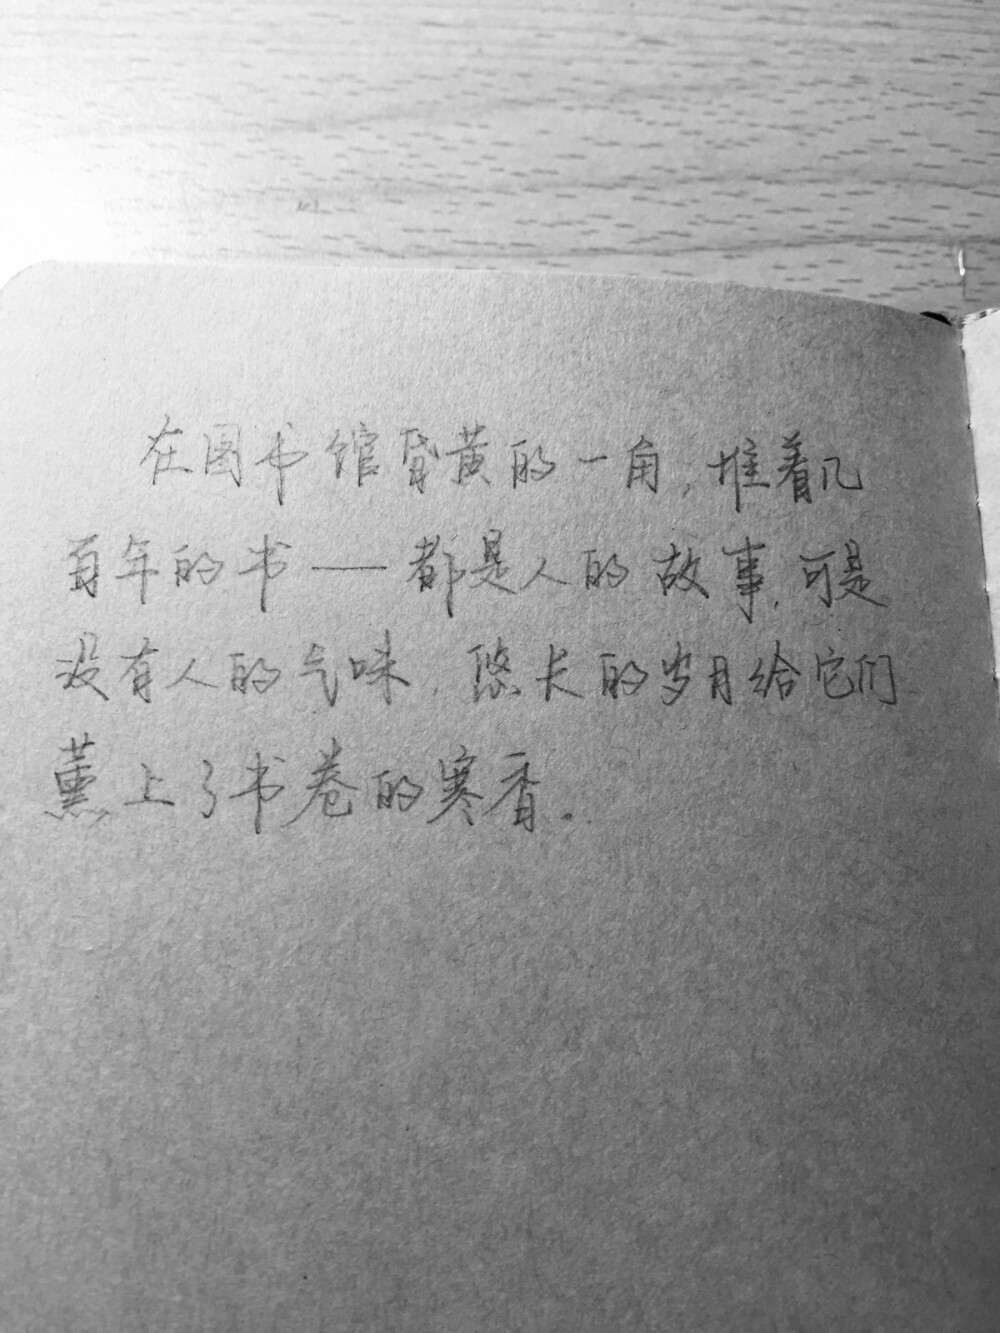 在图书馆昏黄的一角，堆着几
百年的书——都是人的故事，可是
没有人的气味，悠长的岁月给它们
薰上了书卷的寒香。